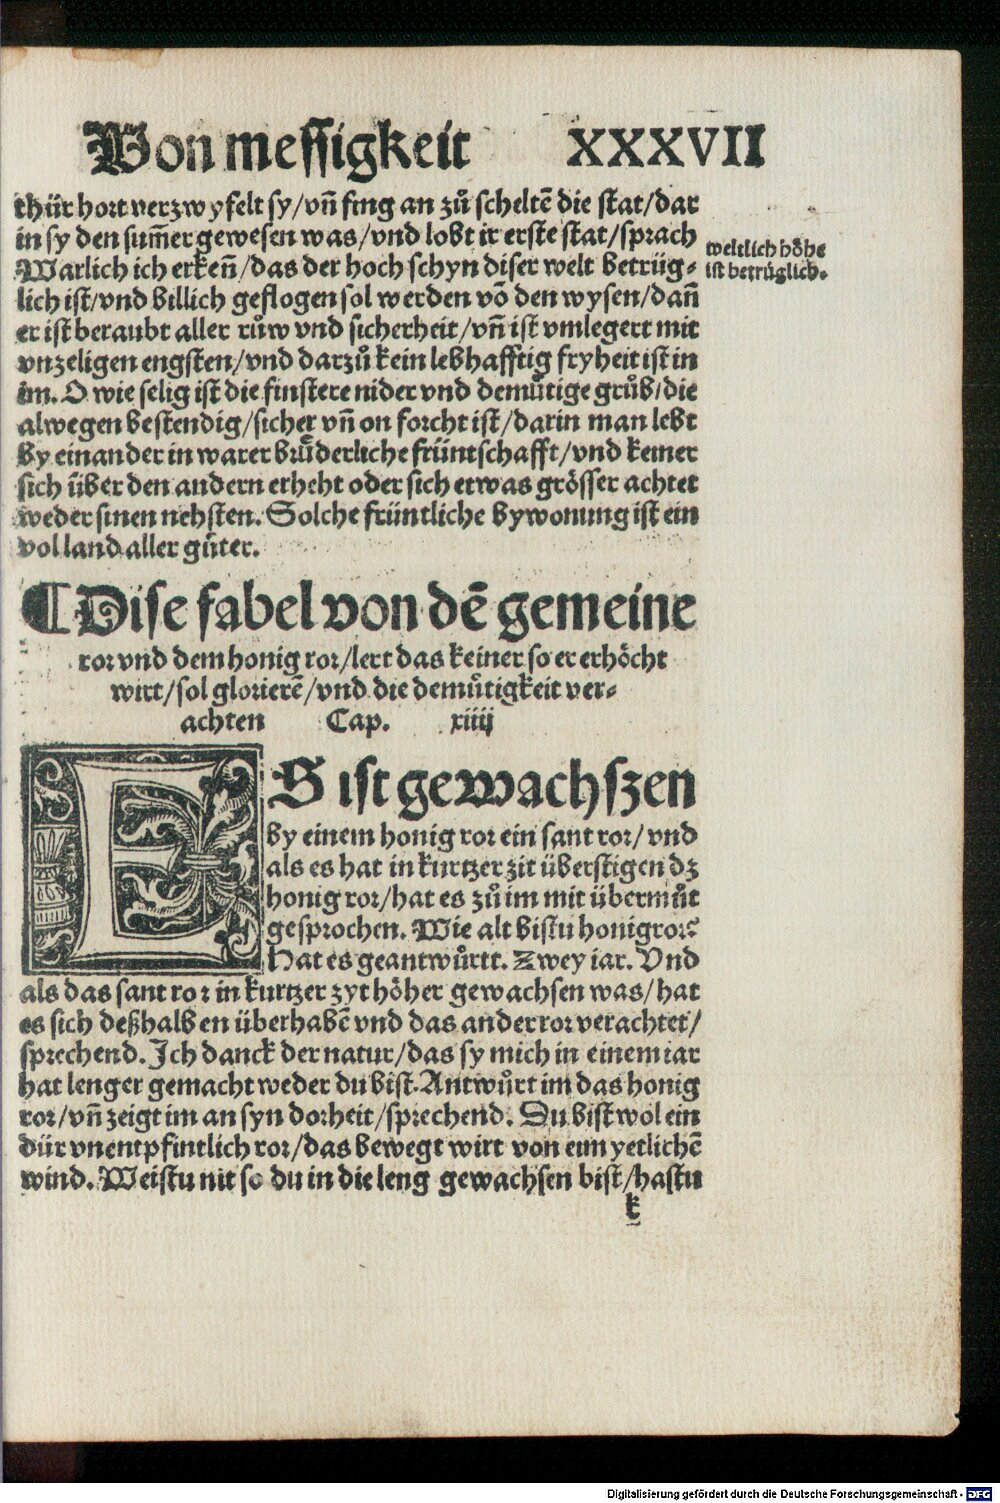 Von messigkeit XXXVII
thür hort verzwyfelt sy/vn̄ fing an zů scheltē die stat/dar
in sy den sum̄er gewesen was/vnd lobt ir erste stat/sprach
Warlich ich erken̄/das der hoch schyn diser welt betrüg⸗
lich ist/vnd billich geflogen sol werden vō den wysen/dan̄
er ist beraubt aller růw vnd sicherheit/vn̄ ist vmlegert mit
vnzeligen engsten/vnd darzů kein lebhafftig fryheit ist in
im. O wie selig ist die finstere nider vnd demůtige grůb/die
alwegen bestendig/sicher vn̄ on forcht ist/darin man lebt
by einander in warer brůderliche früntschafft/vnd keiner
sich über den andern erhebt oder sich etwas grösser achtet
weder sinen nehsten. Solche früntliche bywonung ist ein
vol land aller gůter.
weltlich höhe
ist betrüglich.
¶ Dise fabel von dē gemeine
ror vnd dem honig ror/lert das keiner so er erhöcht
wirt/sol glorierē/vnd die demůtigkeit ver⸗
achten Cap. xiiij
ES ist gewachszen
by einem honig ror ein sant ror/vnd
als es hat in kurtzer zit überstigen dz
honig ror/hat es zů im mit übermůt
gesprochen. Wie alt bistu honigror?
Hat es geantwůrtt. Zwey iar. Vnd
als das sant ror in kurtzer zyt höher gewachsen was/hat
es sich deßhalben überhabē vnd das ander ror verachtet/
sprechend. Ich danck der natur/das sy mich in einem iar
hat lenger gemacht weder du bist. Antwůrt im das honig
ror/vn̄ zeigt im an syn dorheit/sprechend. Du bist wol ein
dür vnentpfintlich ror/das bewegt wirt von eim yetlichē
wind. Weistu nit so du in die leng gewachsen bist/hastu
k
Digitalisierung gefördert durch die Deutsche Forschungsgemeinschaft - DFG